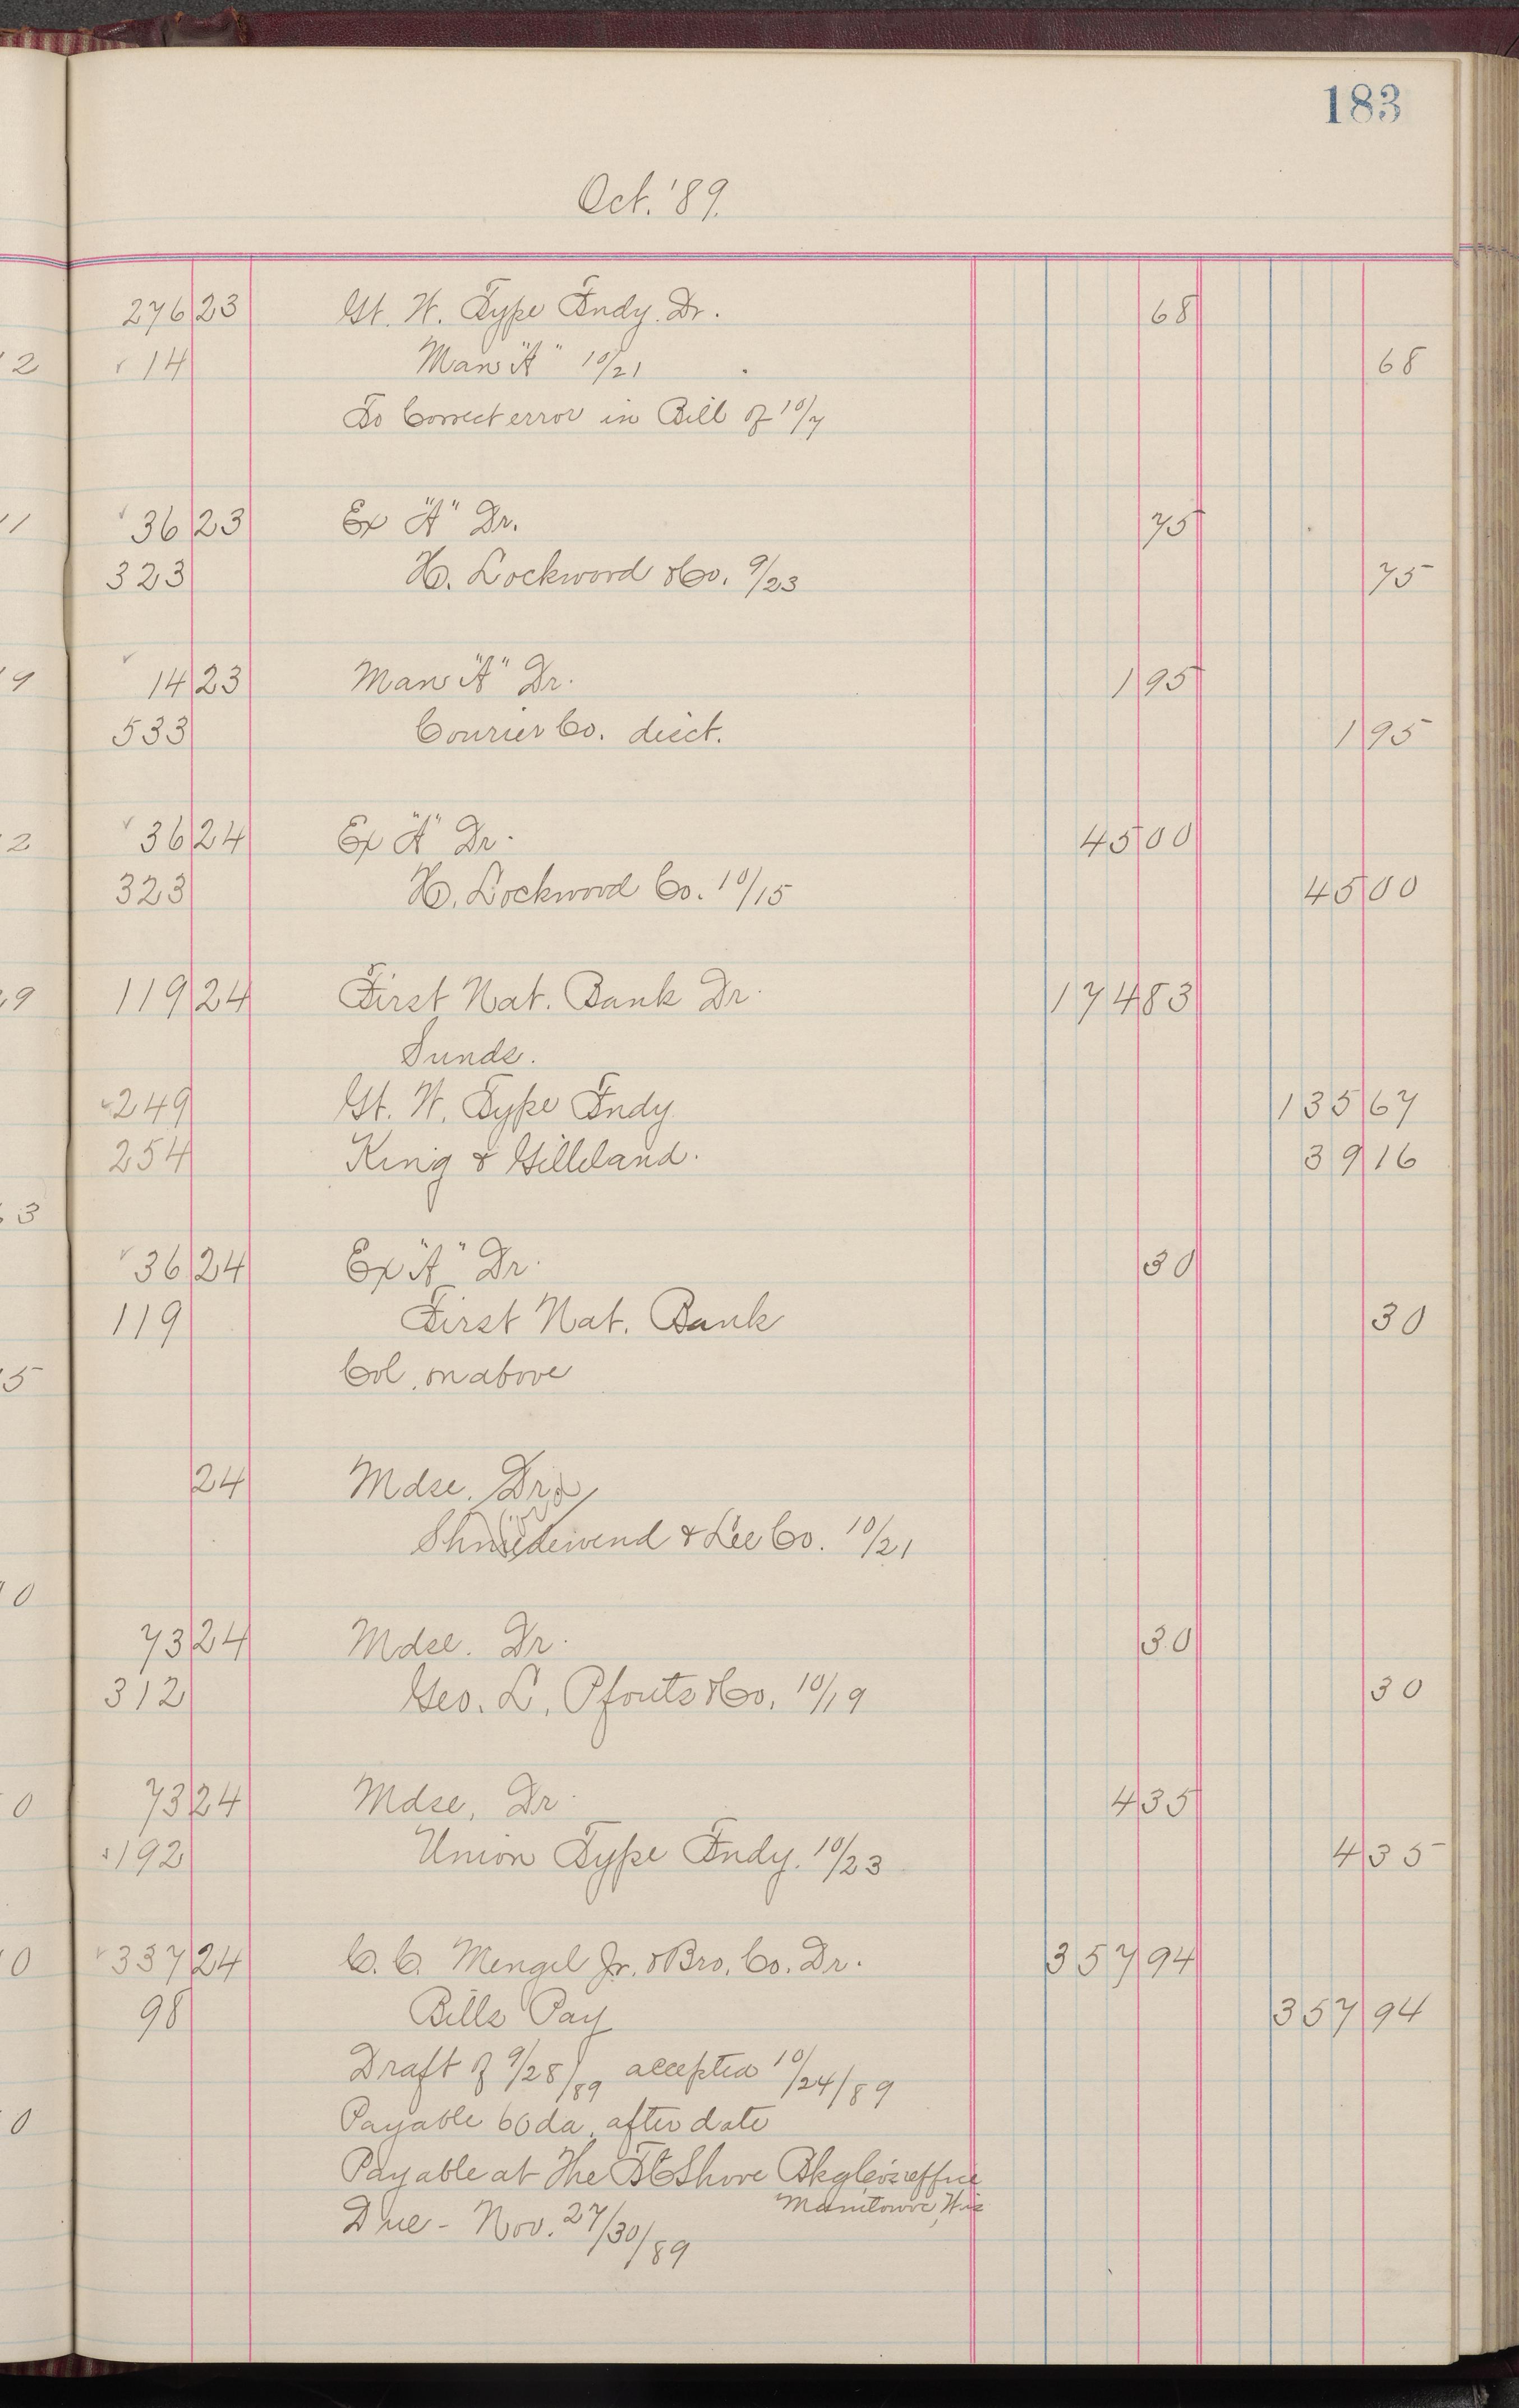 183
Oct. '89.
276 23 Gt. W. Type Fndy. Dr. 68
14 Man "A" 10/21 68
To Correct error in Bill of 10/7
11 36 23 Ex "A" Dr. 75
323 H. Lockwood & Co. 9/23 75
14 23 Man "A" Dr. 1 95
533 Courier Co. disct. 1 95
36 24 Ex "A" Dr. 45 00
323 H. Lockwood Co. 10/15 45 00
119 24 First Nat. Bank Dr. 174 83
Sunds.
249 Gt. W. Type Fndy 135 67
254 King & Gilleland. 39 16
36 24 Ex "A" Dr. 30
119 First Nat. Bank 30
Col. on above
24 Mdse. Dr.
& Lee Co. 10/21
73 24 Mdse. Dr. 30
312 Geo. L. Pfouts & Co. 10/19 30
73 24 Mdse. Dr. 4 35
192 Union Type Fndy. 10/23 4 35
337 24 C. C. Mengel Jr. & Bro. Co. Dr. 357 94
98 Bills Pay 357 94
Draft of 9/28/89 accepted 10/24/89
Payable 60 da. after date
Payable at The Shore office
Manitowoc, Wis
Due - Nov. 27/30/89